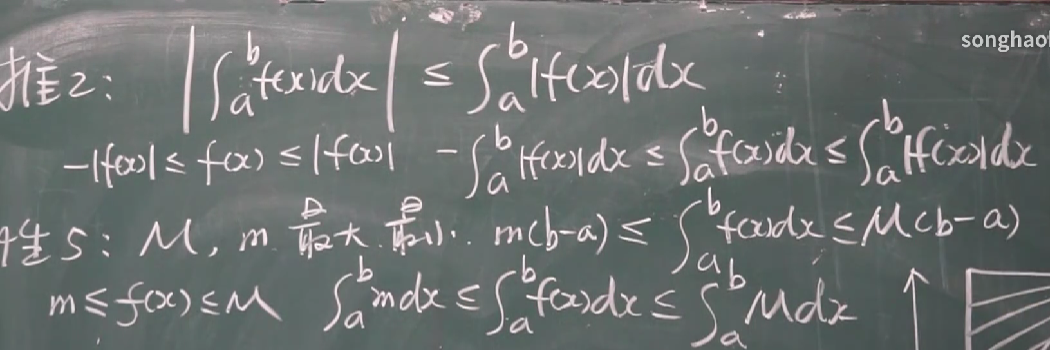 songhao
推2: |∫_a^b f(x)dx| ≤ ∫_a^b |f(x)|dx
-|f(x)| ≤ f(x) ≤ |f(x)| -∫_a^b |f(x)|dx ≤ ∫_a^b f(x)dx ≤ ∫_a^b |f(x)|dx
性5: M, m 最大 最小. m(b-a) ≤ ∫_a^b f(x)dx ≤ M(b-a)
m ≤ f(x) ≤ M ∫_a^b mdx ≤ ∫_a^b f(x)dx ≤ ∫_a^b Mdx